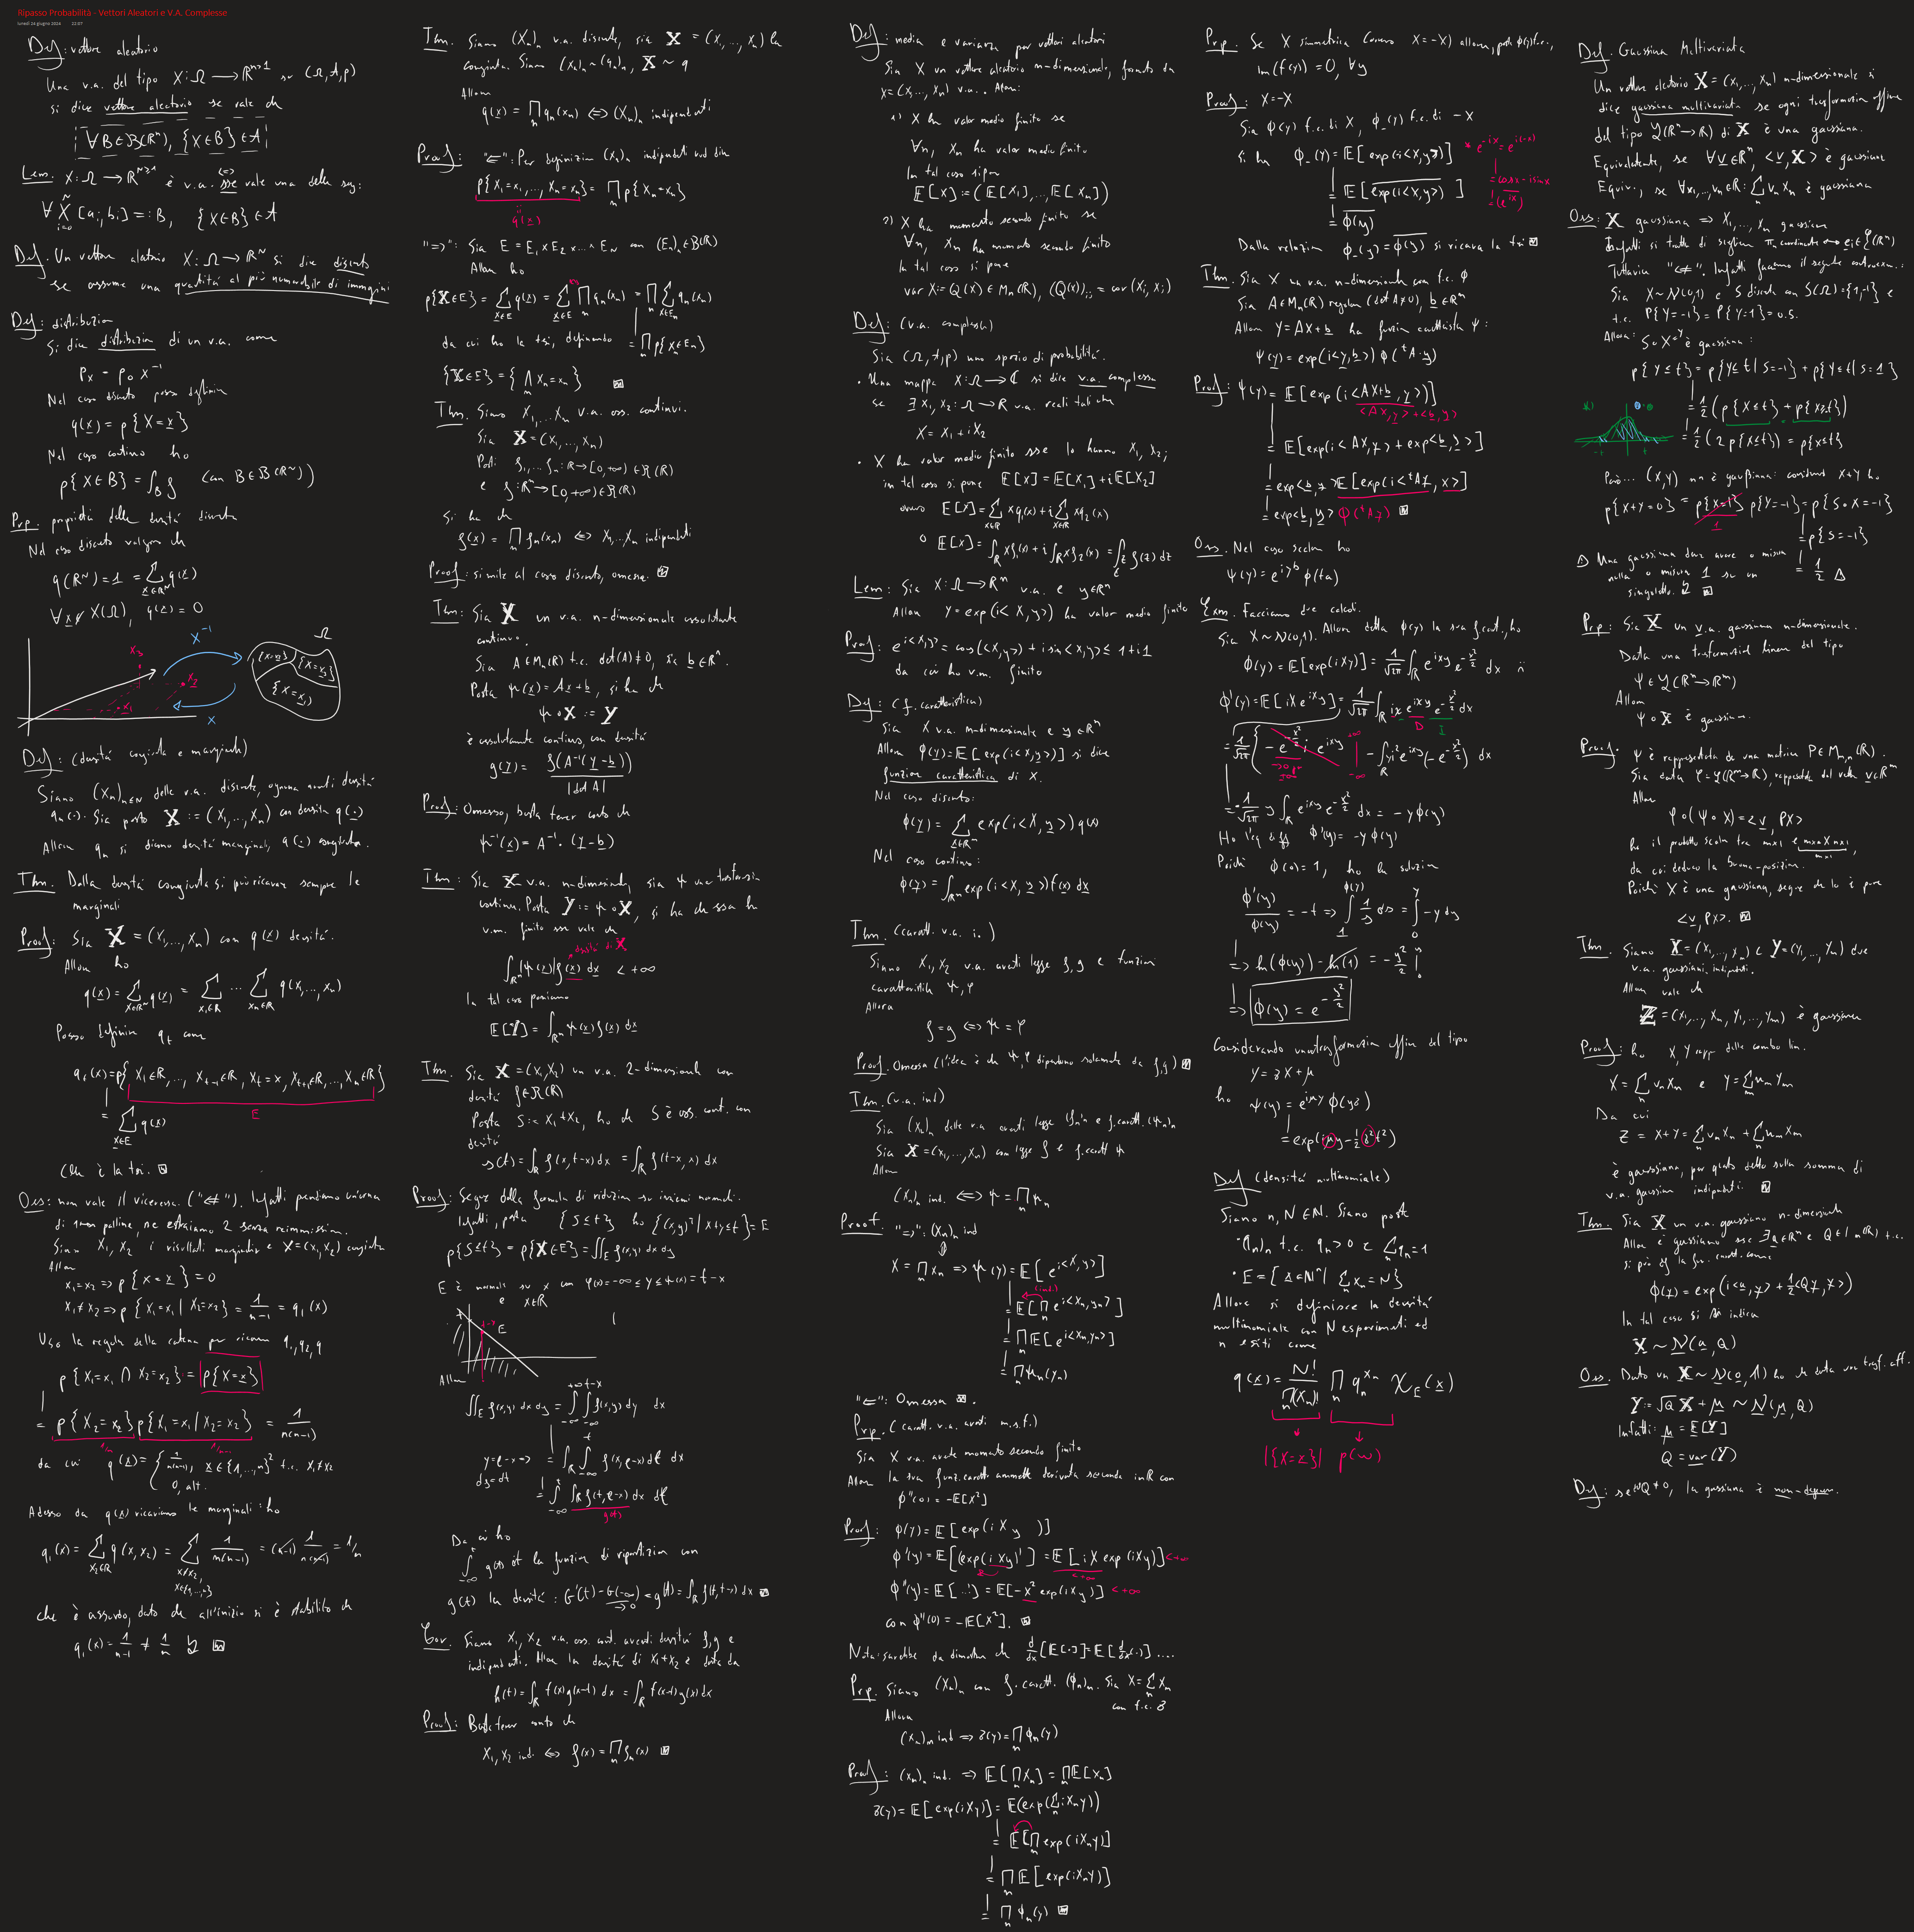 Ripasso Probabilità - Vettori Aleatori e V.A. Complesse
lunedì 24 giugno 2024 22:07
Def: vettore aleatorio
Una v.a. del tipo X: Ω → ℝⁿ>¹ su (Ω, A, p)
si dice vettore aleatorio se vale che
∀B ∈ B(ℝⁿ), {X ∈ B} ∈ A
Lem. X: Ω → ℝᴺ≥¹ è v.a. sse vale una delle seg:
{X ∈ B} ∈ A
Def. Un vettore aleatorio X: Ω → ℝᴺ si dice discreto
se assume una quantità al più numerabile di immagini
Def: distribuzione
Si dice distribuzione di un v.a. come
Pₓ = p ∘ X⁻¹
Nel caso discreto posso definire
q(x) = p{X = x}
Nel caso continuo ho
p{X ∈ B} = ∫_B f (con B ∈ B(ℝᴺ))
Prp. proprietà della densità discreta
Nel caso discreto valgono che
q(ℝᴺ) = 1 = Σ_{x∈ℝᴺ} q(x)
∀x ∉ X(Ω), q(x) = 0
X⁻¹
Ω
X
Def: (densità congiunta e marginale)
Siano (Xₙ)ₙ∈ℕ delle v.a. discrete, ognuna aventi densità
qₙ(·). Sia posto X := (X₁, ..., Xₙ) con densità q(·)
Allora qₙ si dicono densità marginali, q(·) congiunta.
Thm. Dalla densità congiunta si può ricavare sempre le
marginali
Proof: Sia X = (X₁, ..., Xₙ) con q(x) densità.
Allora ho
Posso definire qₜ come
E
= Σ_{x∈E} q(x)
Che è la tesi.
Oss: non vale il viceversa. ("⇍"). Infatti prendiamo un'urna
di n palline, ne estraiamo 2 senza reimmissione.
Siano X₁, X₂ i risultati marginali e X = (X₁, X₂) congiunta
Allora
x₁ = x₂ ⇒ p{X = x} = 0
x₁ ≠ x₂ ⇒ p{X₁ = x₁ | X₂ = x₂} = 1/(n-1) = q₁(x)
Uso la regola della catena per ricavare q₁, q₂, q
p{X₁ = x₁ ∩ X₂ = x₂} = p{X = x}
= p{X₂ = x₂} p{X₁ = x₁ | X₂ = x₂} = 1/n(n-1)
da cui q(x) = { 1/n(n-1), x ∈ {1, ..., n}² t.c. x₁ ≠ x₂
0, alt.
Adesso da q(x) ricaviamo le marginali: ho
che è assurdo, dato che all'inizio si è stabilito che
q₁(x) = 1/(n-1) ≠ 1/n
Thm. Siano (Xₙ)ₙ v.a. discrete, sia X = (X₁, ..., Xₙ) la
congiunta. Siano (Xₙ)ₙ ~ (qₙ)ₙ, X ~ q
Allora
q(x) = ∏ₙ qₙ(xₙ) ⇔ (Xₙ)ₙ indipendenti
Proof: "⇐": Per definizione (Xₙ)ₙ indipendenti vuol dire
p{X₁ = x₁, ..., Xₙ = xₙ} = ∏ₙ p{Xₙ = xₙ}
q(x)
"⇒": Sia E = E₁ × E₂ × ... × E_N con (Eₙ)ₙ ∈ B(ℝ)
Allora ho
p{X ∈ E} = Σ_{x∈E} q(x) = Σ_{x∈E} ∏ₙ qₙ(xₙ) = ∏ₙ Σ_{x∈Eₙ} qₙ(xₙ)
da cui ho la tesi, definendo = ∏ₙ p{Xₙ ∈ Eₙ}
Thm. Siano X₁, ..., Xₙ v.a. ass. continui.
Sia X = (X₁, ..., Xₙ)
Posti f₁, ..., fₙ: ℝ → [0, +∞) ∈ R(ℝ)
e f: ℝⁿ → [0, +∞) ∈ R(ℝ)
Si ha che
f(x) = ∏ₙ fₙ(xₙ) ⇔ X₁, ..., Xₙ indipendenti
Proof: simile al caso discreto, omessa.
Thm: Sia X un v.a. n-dimensionale assolutamente
continuo.
Sia A ∈ Mₙ(ℝ) t.c. det(A) ≠ 0, sia b ∈ ℝⁿ.
Posta ψ(x) = Ax + b, si ha che
ψ ∘ X := Y
è assolutamente continuo, con densità
g(y) = f(A⁻¹(y - b)) / |det A|
Proof: Omesso, basta tener conto che
ψ⁻¹(x) = A⁻¹ · (y - b)
Thm: Sia X v.a. n-dimensionale, sia ψ una trasformazione
continua. Posta Y := ψ ∘ X, si ha che essa ha
v.m. finito sse vale che
densità di X
∫_{ℝⁿ} |ψ(x)| f(x) dx < +∞
In tal caso poniamo
E[Y] = ∫_{ℝⁿ} ψ(x) f(x) dx
Thm. Sia X = (X₁, X₂) un v.a. 2-dimensionale con
densità f ∈ R(ℝ)
Posta S := X₁ + X₂, ho che S è ass. cont. con
densità
s(t) = ∫_ℝ f(x, t-x) dx = ∫_ℝ f(t-x, x) dx
Proof: Segue dalla formula di riduzione su insiemi normali.
Infatti, posta {S ≤ t} ho {(x, y)ᵀ | x + y ≤ t} = E
p{S ≤ t} = p{X ∈ E} = ∬_E f(x, y) dx dy
E è normale su x con φ(x) = -∞ ≤ y ≤ ψ(x) = t - x
e x ∈ ℝ
E
Allora
Da cui ho
la funzione di ripartizione con
Cor. Siano X₁, X₂ v.a. ass. cont. aventi densità f, g e
indipendenti. Allora la densità di X₁ + X₂ è data da
Proof: Basta tener conto che
X₁, X₂ ind. ⇔ f(x) = ∏ₙ fₙ(x)
Def: media e varianza per vettori aleatori
Sia X un vettore aleatorio n-dimensionale, formato da
X = (X₁, ..., Xₙ) v.a. . Allora:
1) X ha valor medio finito se
∀n, Xₙ ha valor medio finito
In tal caso si pone
E[X] := (E[X₁], ..., E[Xₙ])
2) X ha momento secondo finito se
∀n, Xₙ ha momento secondo finito
In tal caso si pone
var X := Q(X) ∈ Mₙ(ℝ), (Q(X))ᵢⱼ = cov(Xᵢ, Xⱼ)
Def: (v.a. complessa)
Sia (Ω, A, p) uno spazio di probabilità.
• Una mappa X: Ω → ℂ si dice v.a. complessa
se ∃X₁, X₂: Ω → ℝ v.a. reali tali che
X = X₁ + iX₂
• X ha valor medio finito sse lo hanno X₁, X₂;
in tal caso si pone E[X] = E[X₁] + iE[X₂]
ovvero E[X] = Σ_{x∈ℝ} xq₁(x) + i Σ_{x∈ℝ} xq₂(x)
o E[X] = ∫_ℝ xf₁(x) + i∫_ℝ xf₂(x) = ∫_ℂ z f(z) dz
Lem: Sia X: Ω → ℝⁿ v.a. e y ∈ ℝⁿ
Allora Y = exp(i<X, y>) ha valor medio finito
Proof: e^{i<X,y>} = cos(<X, y>) + i sin<X, y> ≤ 1 + i1
da cui ho v.m. finito
Def: (f. caratteristica)
Sia X v.a. n-dimensionale e y ∈ ℝⁿ
Allora φ(y) = E[exp(i<X, y>)] si dice
funzione caratteristica di X.
Nel caso discreto:
φ(y) = Σ_{x∈ℝⁿ} exp(i<X, y>) q(x)
Nel caso continuo:
φ(y) = ∫_{ℝⁿ} exp(i<X, y>) f(x) dx
Thm. (caratt. v.a. i.)
Siano X₁, X₂ v.a. aventi legge f, g e funzioni
caratteristiche ψ, φ
Allora
f = g ⇔ ψ = φ
Proof. Omessa (l'idea è che ψ, φ dipendono solamente da f, g)
Thm. (v.a. ind)
Sia (Xₙ)ₙ delle v.a. aventi legge (fₙ)ₙ e f. caratt. (ψₙ)ₙ
Sia X = (X₁, ..., Xₙ) con legge f e f. caratt ψ
Allora
(Xₙ)ₙ ind. ⇔ ψ = ∏ₙ ψₙ
Proof. "⇒": (Xₙ)ₙ ind
X = ∏ₙ Xₙ ⇒ ψ(y) = E[e^{i<X,y>}]
(ind.)
= E[∏ₙ e^{i<Xₙ,yₙ>}]
= ∏ₙ E[e^{i<Xₙ,yₙ>}]
= ∏ₙ ψₙ(yₙ)
"⇐": Omessa.
Prp. (caratt. v.a. aventi m.s.f.)
Sia X v.a. avente momento secondo finito
Allora la sua funz. caratt ammette derivata seconda in ℝ con
φ''(0) = -E[X²]
Proof: φ(y) = E[exp(iXy)]
φ'(y) = E[(exp(iXy))'] = E[iX exp(iXy)] < +∞
φ''(y) = E[...'] = E[-X² exp(iXy)] < +∞
con φ''(0) = -E[X²].
Nota: sarebbe da dimostrare che d/dx[E[·]] = E[d/dx(·)] ....
Prp. Siano (Xₙ)ₙ con f. caratt. (φₙ)ₙ. Sia X = Σₙ Xₙ
con f.c. z
Allora
(Xₙ)ₙ ind ⇒ z(y) = ∏ₙ φₙ(y)
Proof: (Xₙ)ₙ ind. ⇒ E[∏ₙ Xₙ] = ∏ₙ E[Xₙ]
z(y) = E[exp(iXy)] = E(exp(Σₙ iXₙy))
= E[∏ₙ exp(iXₙy)]
= ∏ₙ E[exp(iXₙy)]
= ∏ₙ φₙ(y)
Prp. Se X simmetrica (ovvero X = -X) allora, posta φ(y) f.c.,
Im(f(y)) = 0, ∀y
Proof: X = -X
Sia φ(y) f.c. di X, φ₋(y) f.c. di -X
si ha φ₋(y) = E[exp(i<X, y>)]
* e^{-ix} = e^{i(-x)}
= cos x - i sin x
Dalla relazione φ₋(y) = φ(y) si ricava la tesi
Thm. Sia X un v.a. n-dimensionale con f.c. φ
Sia A ∈ Mₙ(ℝ) regolare (det A ≠ 0), b ∈ ℝⁿ
Allora Y = AX + b ha funzione caratteristica ψ:
ψ(y) = exp(i<y, b>) φ(ᵗA·y)
Proof: ψ(y) = E[exp(i<AX+b, y>)]
<AX, y> + <b, y>
= E[exp(i<AX, y> + exp<b, y>]
= exp<b, y> E[exp(i<ᵗAy, x>]
= exp<b, y> φ(ᵗAy)
Oss. Nel caso scalare ho
ψ(y) = e^{iyb} φ(ta)
Exm. Facciamo due calcoli.
Sia X ~ N(0,1). Allora detta φ(y) la sua f. caratt., ho
φ(y) = E[exp(iXy)] = 1/√2π ∫_ℝ e^{ixy} e^{-x²/2} dx
φ'(y) = E[iX e^{iXy}] = 1/√2π ∫_ℝ ix e^{ixy} e^{-x²/2} dx
= 1/√2π y ∫_ℝ e^{ixy} e^{-x²/2} dx = -yφ(y)
Ho l'eq. diff φ'(y) = -yφ(y)
Poiché φ(0) = 1, ho la soluzione
⇒ ln(φ(y)) - ln(1) = -y²/2 |
⇒ φ(y) = e^{-y²/2}
Considerando una trasformazione affine del tipo
Y = σX + μ
ho ψ(y) = e^{iμy} φ(yσ)
= exp(iμy - ½σ²t²)
Def (densità multinomiale)
Siano n, N ∈ ℕ. Siano poste
• (qₙ)ₙ t.c. qₙ > 0 e Σqₙ = 1
• E = {x ∈ ℕⁿ | Σ xₙ = N}
Allora si definisce la densità
multinomiale con N esperimenti ed
n esiti come
q(x) = N!/∏ₙ(Xₙ)! ∏ₙ qₙ^{xₙ} χ_E(x)
|{X = x}| p(ω)
Def. Gaussiana Multivariata
Un vettore aleatorio X = (X₁, ..., Xₙ) n-dimensionale si
dice gaussiana multivariata se ogni trasformazione affine
del tipo L(ℝⁿ → ℝ) di X è una gaussiana.
Equivalentemente, se ∀v ∈ ℝⁿ, <v, X> è gaussiana
Equiv., se ∀v₁, ..., vₙ ∈ ℝ: Σₙ vₙXₙ è gaussiana
Oss: X gaussiana ⇒ X₁, ..., Xₙ gaussiane
Tuttavia "⇍". Infatti facciamo il seguente controesem.:
Sia X ~ N(0,1) e S discreta con S(Ω) = {1, -1} e
t.c. P{Y = -1} = P{Y = 1} = 0.5.
Allora: S∘X = Y è gaussiana:
p{Y ≤ t} = p{Y ≤ t | S = -1} + p{Y ≤ t | S = 1}
= ½(p{X ≤ t} + p{X ≥ t})
= ½(2p{X ≤ t}) = p{X ≤ t}
-t t
Però... (X, Y) non è gaussiana: considero X + Y ho
= p{S = -1}
= ½
Una gaussiana deve avere o misura
nulla o misura 1 su un
singoletto.
Prp: Sia X un v.a. gaussiana n-dimensionale.
Data una trasformazione lineare del tipo
ψ ∈ L(ℝⁿ → ℝᵐ)
Allora
ψ ∘ X è gaussiana.
Proof. ψ è rappresentata da una matrice P ∈ Mₘ,ₙ(ℝ).
Sia data φ = L(ℝᵐ → ℝ), rappresentata dal vettore v ∈ ℝᵐ
Allora
φ ∘ (ψ ∘ X) = <v, PX>
da cui deduco la buona-posizione.
Poiché X è una gaussiana, segue che lo è pure
<v, PX>.
Thm. Siano X = (X₁, ..., Xₙ) e Y = (Y₁, ..., Yₘ) due
v.a. gaussiani indipendenti.
Allora vale che
Z = (X₁, ..., Xₙ, Y₁, ..., Yₘ) è gaussiana
Proof: ho X, Y rapp. dalle combo lin.
X = Σₙ vₙXₙ e Y = Σₘ uₘYₘ
Da cui
Z = X + Y = Σₙ vₙXₙ + Σₘ uₘXₘ
è gaussiana, per quanto detto sulla somma di
v.a. gaussiane indipendenti.
Thm. Sia X un v.a. gaussiano n-dimensionale
φ(y) = exp(i<a, y> + ½<Qy, y>)
In tal caso si indica
X ~ N(a, Q)
Oss. Dato un X ~ N(0, 1) ho che data una trasf. aff.
Y = √Q X + μ ~ N(μ, Q)
Infatti: μ = E[Y]
Q = var(Y)
Def: se Q ≠ 0, la gaussiana è non-degen.